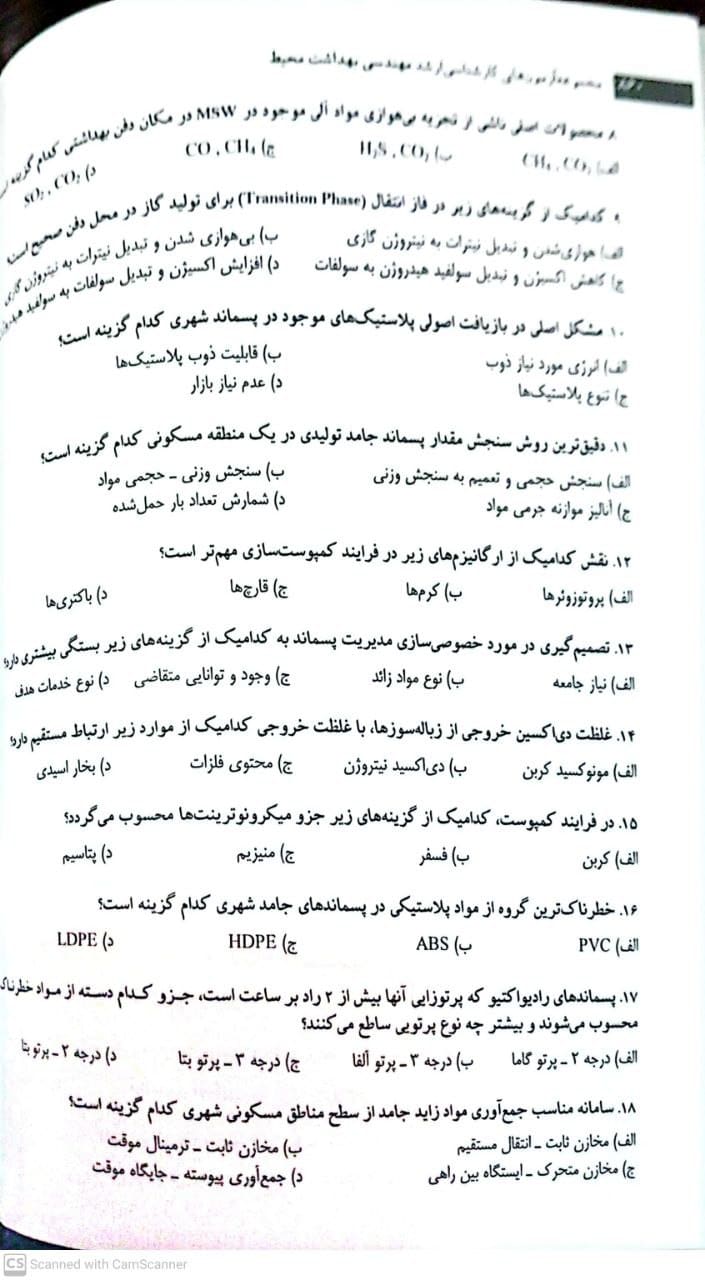 مجموعه آزمون‌های کارشناسی ارشد مهندسی بهداشت محیط
۸. محصولات اصلی ناشی از تجزیه بی‌هوازی مواد آلی موجود در MSW در مکان دفن بهداشتی کدام گزینه
الف) CH₄ ، CO₂ ب) H₂S ، CO₂ ج) CO ، CH₄ د) SO₂ ، CO₂
۹. کدامیک از گزینه‌های زیر در فاز انتقال (Transition Phase) برای تولید گاز در محل دفن صحیح است؟
الف) هوازی‌شدن و تبدیل نیترات به نیتروژن گازی ب) بی‌هوازی شدن و تبدیل نیترات به نیتروژن گازی
ج) کاهش اکسیژن و تبدیل سولفید هیدروژن به سولفات د) افزایش اکسیژن و تبدیل سولفات به سولفید هیدروژن
۱۰. مشکل اصلی در بازیافت اصولی پلاستیک‌های موجود در پسماند شهری کدام گزینه است؟
الف) انرژی مورد نیاز ذوب ب) قابلیت ذوب پلاستیک‌ها
ج) تنوع پلاستیک‌ها د) عدم نیاز بازار
۱۱. دقیق‌ترین روش سنجش مقدار پسماند جامد تولیدی در یک منطقه مسکونی کدام گزینه است؟
الف) سنجش حجمی و تعمیم به سنجش وزنی ب) سنجش وزنی ـ حجمی مواد
ج) آنالیز موازنه جرمی مواد د) شمارش تعداد بار حمل‌شده
۱۲. نقش کدامیک از ارگانیزم‌های زیر در فرایند کمپوست‌سازی مهم‌تر است؟
الف) پروتوزوئرها ب) کرم‌ها ج) قارچ‌ها د) باکتری‌ها
۱۳. تصمیم‌گیری در مورد خصوصی‌سازی مدیریت پسماند به کدامیک از گزینه‌های زیر بستگی بیشتری دارد؟
الف) نیاز جامعه ب) نوع مواد زائد ج) وجود و توانایی متقاضی د) نوع خدمات هدف
۱۴. غلظت دی‌اکسین خروجی از زباله‌سوزها، با غلظت خروجی کدامیک از موارد زیر ارتباط مستقیم دارد؟
الف) مونوکسید کربن ب) دی‌اکسید نیتروژن ج) محتوی فلزات د) بخار اسیدی
۱۵. در فرایند کمپوست، کدامیک از گزینه‌های زیر جزو میکرونوترینت‌ها محسوب می‌گردد؟
الف) کربن ب) فسفر ج) منیزیم د) پتاسیم
۱۶. خطرناک‌ترین گروه از مواد پلاستیکی در پسماندهای جامد شهری کدام گزینه است؟
الف) PVC ب) ABS ج) HDPE د) LDPE
۱۷. پسماندهای رادیواکتیو که پرتوزایی آنها بیش از ۲ راد بر ساعت است، جزو کدام دسته از مواد خطرناک
محسوب می‌شوند و بیشتر چه نوع پرتویی ساطع می‌کنند؟
الف) درجه ۲ ـ پرتو گاما ب) درجه ۳ ـ پرتو آلفا ج) درجه ۳ ـ پرتو بتا د) درجه ۲ ـ پرتو بتا
۱۸. سامانه مناسب جمع‌آوری مواد زاید جامد از سطح مناطق مسکونی شهری کدام گزینه است؟
الف) مخازن ثابت ـ انتقال مستقیم ب) مخازن ثابت ـ ترمینال موقت
ج) مخازن متحرک ـ ایستگاه بین راهی د) جمع‌آوری پیوسته ـ جایگاه موقت
CS Scanned with CamScanner